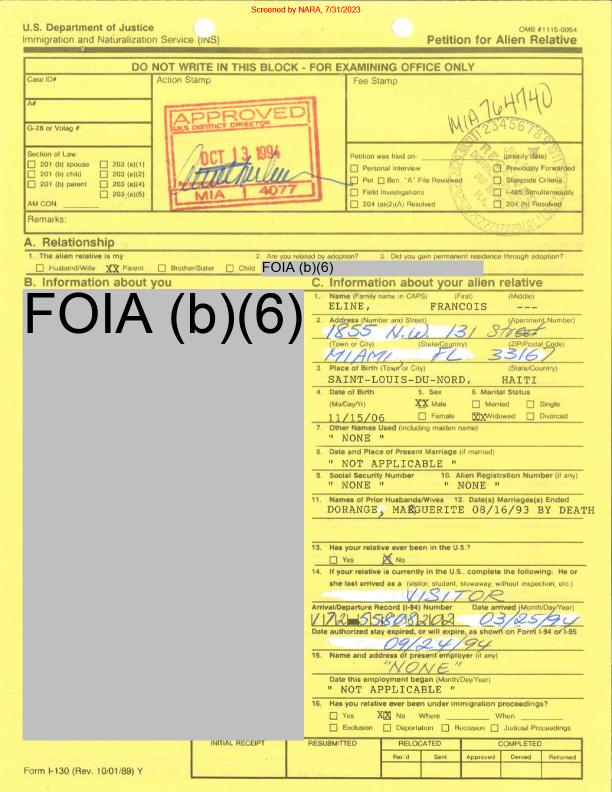 Screened by NARA, 7/31/2023
U.S. Department of Justice
Immigration and Naturalization Service (INS)
OMB #1115-0054
Petition for Alien Relative
DO NOT WRITE IN THIS BLOCK - FOR EXAMINING OFFICE ONLY
Case ID#
Action Stamp
Fee Stamp
A#
G-28 or Volag #
APPROVED
U.S. DISTRICT DIRECTOR
OCT 13 1994
MIA 1 4077
MIA 764740
Section of Law:
201 (b) spouse 203 (a)(1)
201 (b) child 203 (a)(2)
201 (b) parent 203 (a)(4)
203 (a)(5)
AM CON:
Petition was filed on: (priority date)
Personal Interview Previously Forwarded
Pet. Ben. "A" File Reviewed Stateside Criteria
Field Investigations I-485 Simultaneously
204 (a)(2)(A) Resolved 204 (h) Resolved
Remarks:
A. Relationship
1. The alien relative is my 2. Are you related by adoption? 3. Did you gain permanent residence through adoption?
Husband/Wife XX Parent Brother/Sister Child FOIA (b)(6)
B. Information about you
FOIA (b)(6)
C. Information about your alien relative
1. Name (Family name in CAPS) (First) (Middle)
ELINE, FRANCOIS ---
2. Address (Number and Street) (Apartment Number)
1855 N.W. 131 Street
(Town or City) (State/Country) (ZIP/Postal Code)
MIAMI, FL 33167
3. Place of Birth (Town or City) (State/Country)
SAINT-LOUIS-DU-NORD, HAITI
4. Date of Birth 5. Sex 6. Marital Status
(Mo/Day/Yr) XX Male Married Single
11/15/06 Female XX Widowed Divorced
7. Other Names Used (including maiden name)
" NONE "
8. Date and Place of Present Marriage (if married)
" NOT APPLICABLE "
9. Social Security Number 10. Alien Registration Number (if any)
" NONE " " NONE "
11. Names of Prior Husbands/Wives 12. Date(s) Marriages(s) Ended
DORANGE, MARGUERITE 08/16/93 BY DEATH
13. Has your relative ever been in the U.S.?
Yes X No
14. If your relative is currently in the U.S., complete the following: He or
she last arrived as a (visitor, student, stowaway, without inspection, etc.)
VISITOR
Arrival/Departure Record (I-94) Number Date arrived (Month/Day/Year)
03/25/94
Date authorized stay expired, or will expire, as shown on Form I-94 or I-95
09/24/94
15. Name and address of present employer (if any)
"NONE"
Date this employment began (Month/Day/Year)
" NOT APPLICABLE "
16. Has you relative ever been under immigration proceedings?
Yes XX No Where When
Exclusion Deportation Recission Judicial Proceedings
INITIAL RECEIPT RESUBMITTED RELOCATED COMPLETED
Rec'd Sent Approved Denied Returned
Form I-130 (Rev. 10/01/89) Y